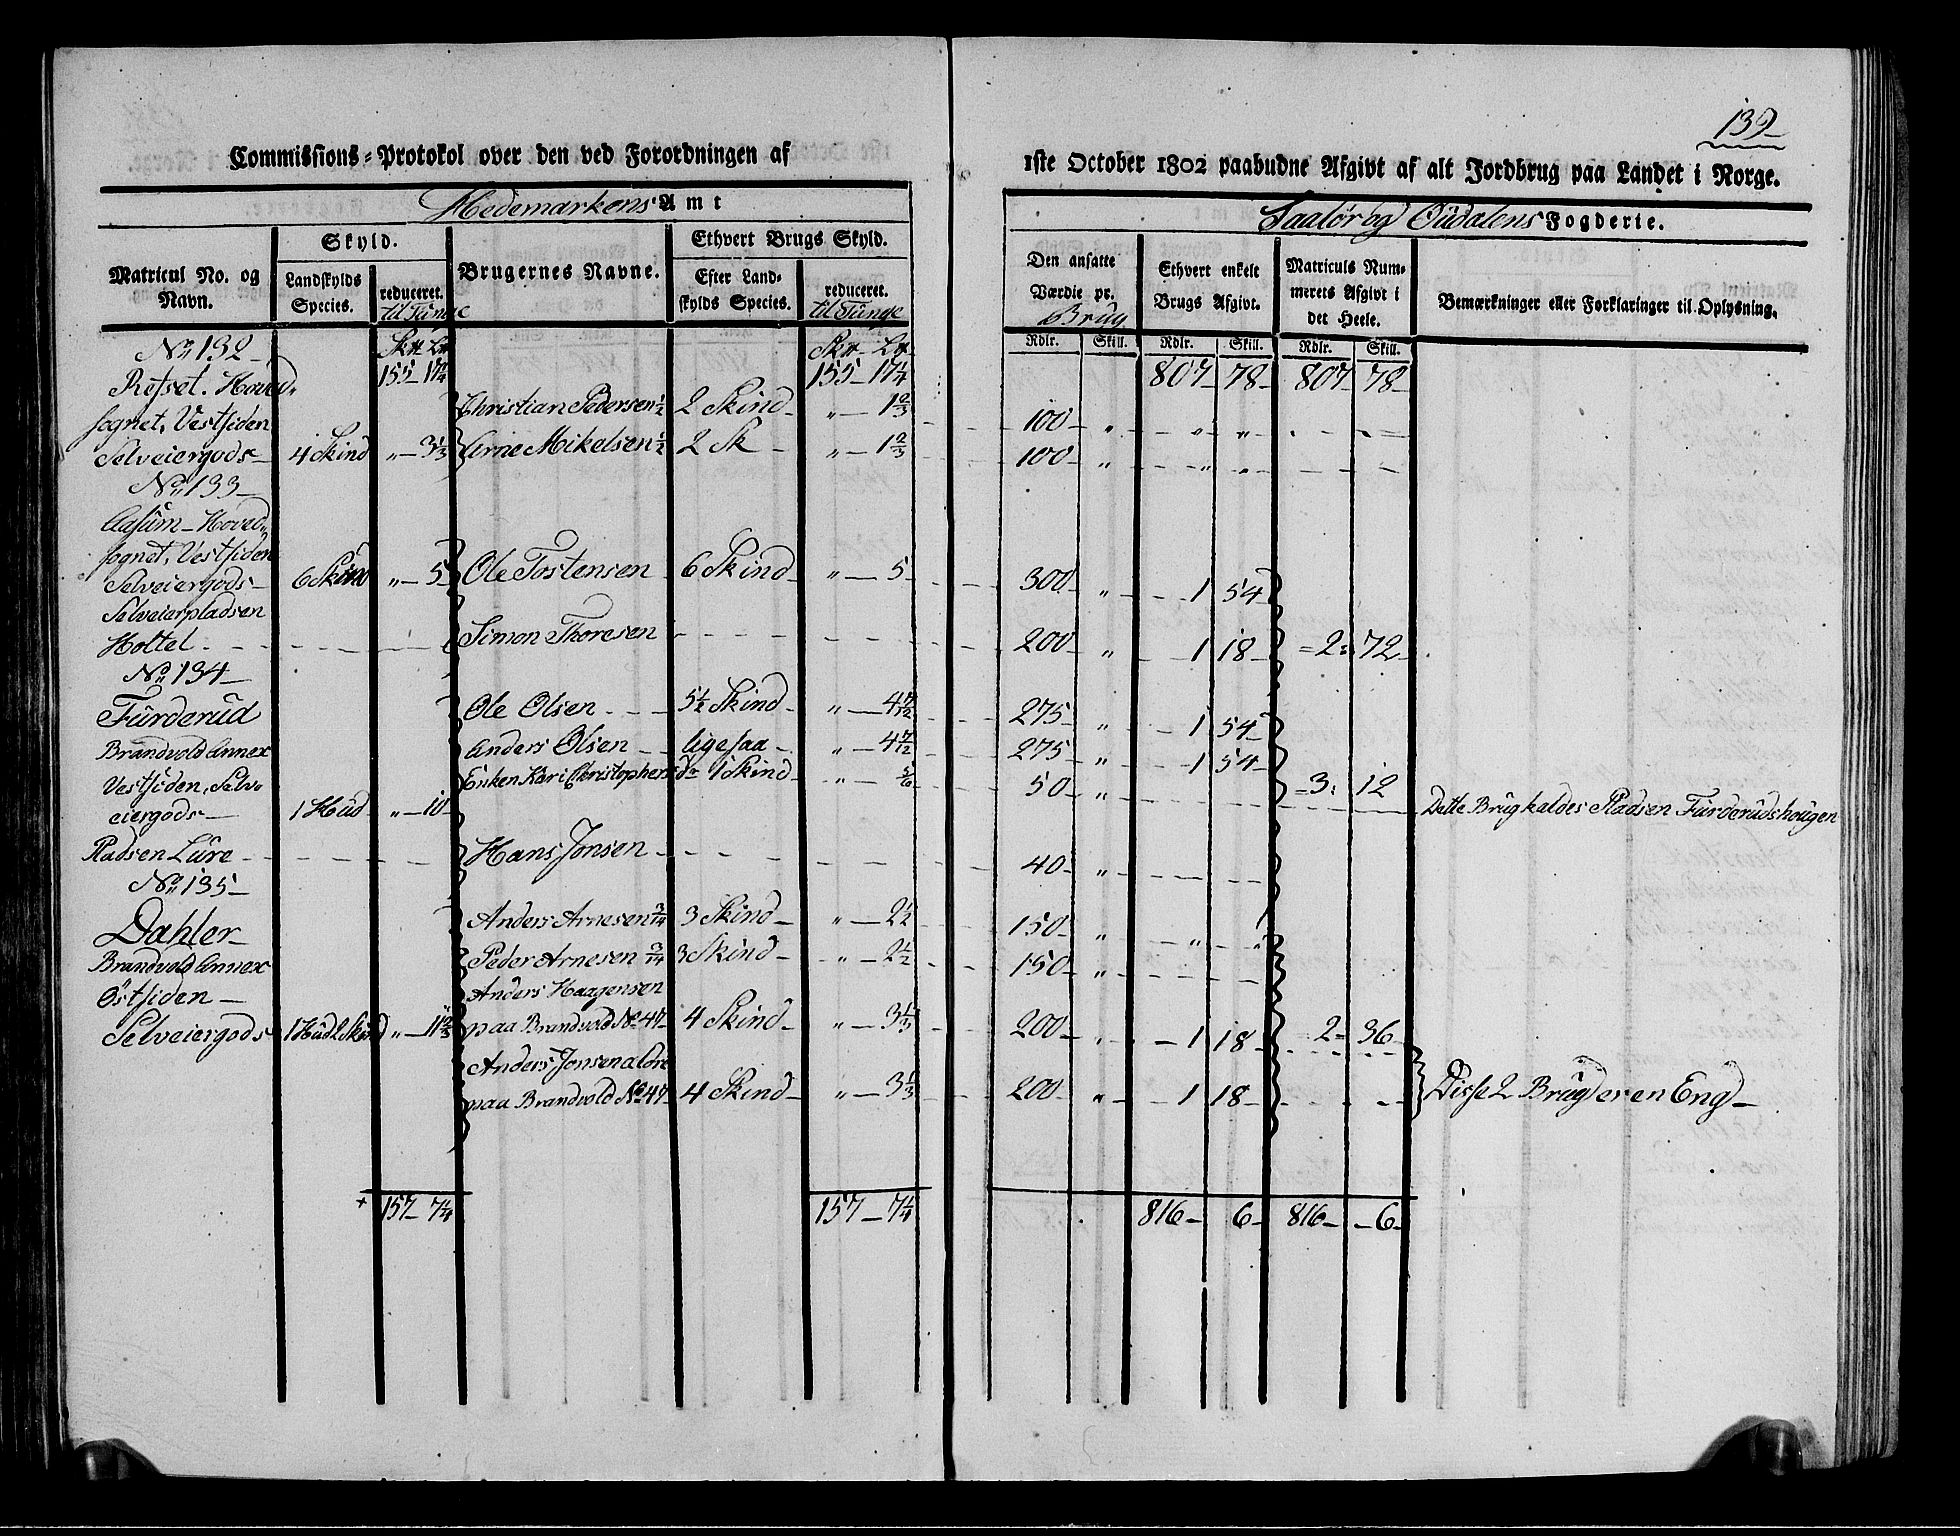 139
Commissions-Protokol over den ved Forordningen af
1ste October 1802 paabudne Afgivt af alt Jordbrug paa Landet i Norge.
Hedemarkens Amt
Saalør og Oüdalens Fogderie.
Matricul No. og Navn.
Skyld.
Landskylds Species.
reduceret. til Tünge
Brugernes Navne.
Ethvert Brugs Skyld.
Efter Landskylds Species.
reduceret. til Tünge
Den ansatte Værdie pr. Brüg
Ethvert enkelt Brugs Afgivt.
Matriculs Nummerets Afgivt i det Heele.
Bemærkninger eller Forklaringer til Oplysning.
Rdlr. Skill. Rdlr. Skill. Rdlr. Skill.
No 132
155 - 17¼ 155 - 17¼ 807 - 78 - 807 - 78 -
Refset. Hoved-
sognet, Vestsiden Christian Pedersen ½ 2 Skind - " - 1⅔ 100 - " - " "
Selveiergods - 4 Skind " - 3⅓ Arne Mikelsen ½ 2 Sk - " - 1⅔ 100 - " - " "
No 133 -
Aasüm - Hoved-
sognet, Vestsiden
Selveiergods - 6 Skind " - 5 Ole Tostensen 6 Skind - " - 5 300 " 1 54
Selveierpladsen
Holtel Simon Thoresen 200 " 1 18 2 72
No 134 -
Fürderüd Ole Olsen 5½ Skind - " - 4 7/12 275 - " 1 54
Brandvold Annex Anders Olsen ligesaa - " - 4 7/12 275 " 1 54
Vestsiden, Selv- Enken Kari Christophersd 1 Skind - " - 5/6 50 " 3 12
eiergods - 1 Hüd " - 10 - Dette Brüg kaldes Pladsen Fürderüdshoügen
Pladsen Lüre Hans Jonsen 40 - "
No 135 -
Dahler - Anders Arnesen 3/14 3 Skind - " - 2½ 150 - " - " "
Brandvold Annex Peder Arnesen 3/14 3 Skind - " - 2½ 150 - "
Östsiden - Anders Haagensen
Selveiergods 1 Hüd 2 Skind " - 11⅔ paa Brandvold No 47 - 4 Skind - " - 3⅓ 200 - " 1 18 2 36
Anders Jonsen
paa Brandvold No 47 - 4 Skind - " - 3⅓ 200 " 1 18 Disse 2 Brüg er en Eng -
157 - 7¼ 157 - 7¼ 816 - 6 - 816 - 6 -